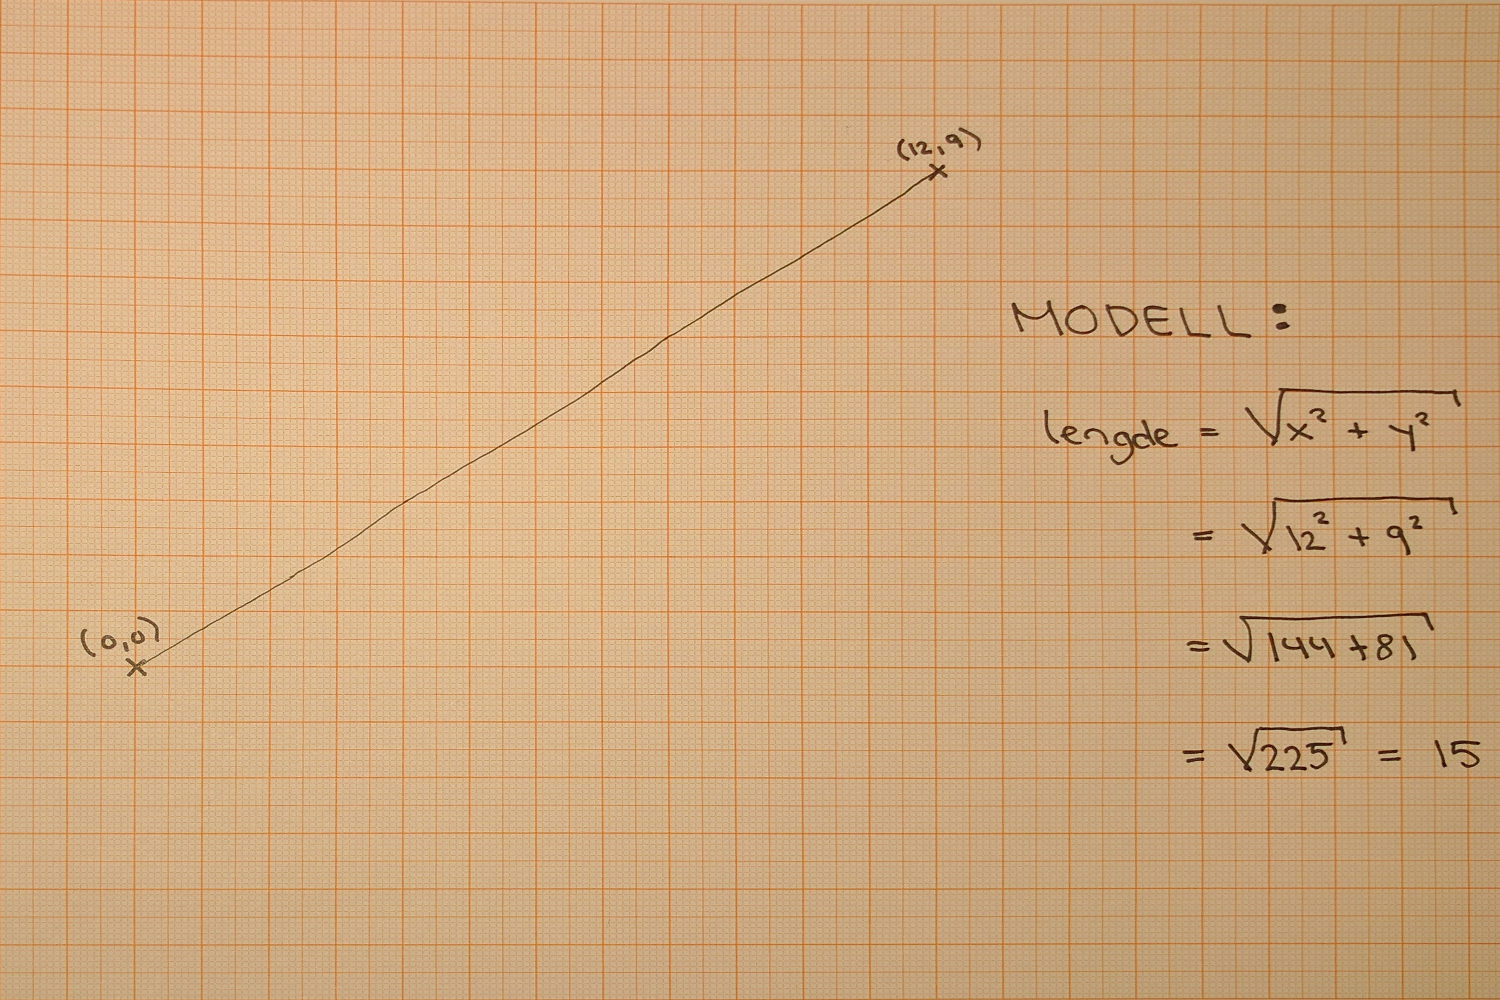 (12,9)
(0,0)
MODELL:
lengde = √x² + y²
= √12² + 9²
= √144 + 81
= √225 = 15